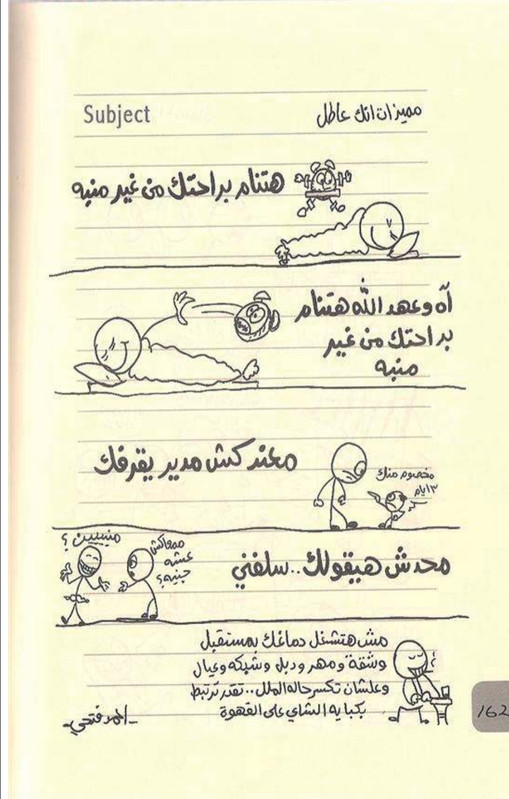 Subject
مميزات انك عاطل
هتنام براحتك من غير منبه
آه وعهد الله هتنام
براحتك من غير
منبه
معندكش مدير يقرفك
مخصوم منك
٣ ايام
محدش هيقولك..سلفني
معاكش
عشره
جنيه؟
منيييين؟
مش هتشغل دماغك بمستقبل
وشقة ومهر ودبل وشبكه وعيال
وعلشان تكسر حاله الملل..تقدر ترتبط
بكبايه الشاي على القهوة
-احمد فتحي-
162